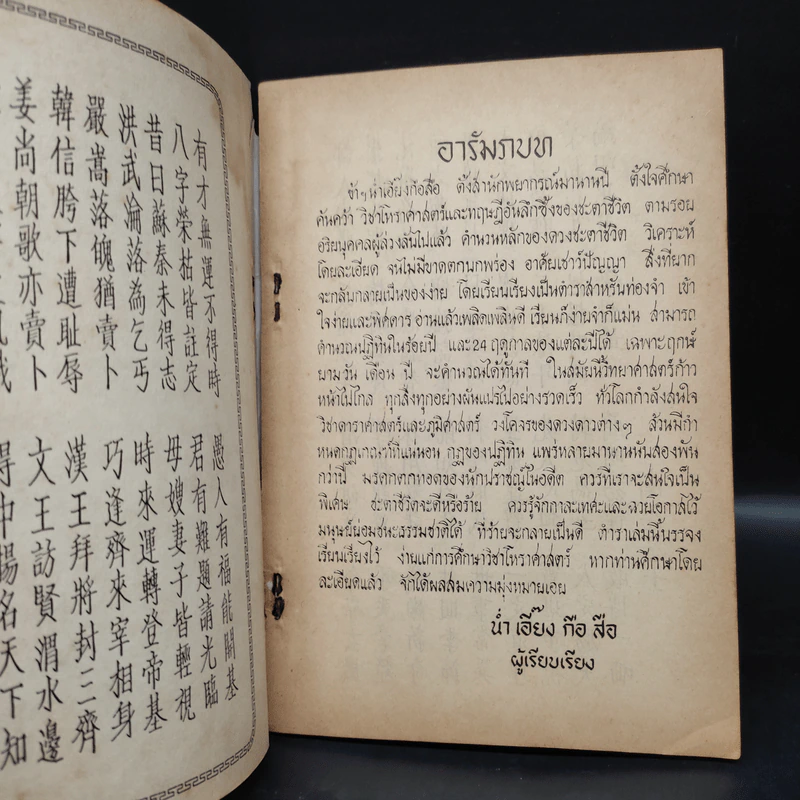 有才無運不得時
八字榮枯皆註定
昔日蘇秦未得志
洪武淪落為乞丐
嚴嵩落魄猶賣卜
韓信胯下遭恥辱
姜尚朝歌亦賣卜
愚人有福能開基
君有難題請光臨
母嫂妻子皆輕視
時來運轉登帝基
巧逢齊來宰相身
漢王拜將封三齊
文王訪賢渭水邊
得中揚名天下知
อารัมภบท
ข้าฯน่ำเอี๊ยงกือสือ ตั้งสำนักพยากรณ์มานานปี ตั้งใจศึกษา
ค้นคว้า วิชาโหราศาสตร์และทฤษฎีอันลึกซึ้งของชะตาชีวิต ตามรอย
อริยบุคคลผู้ล่วงลับไปแล้ว คำนวนหลักของดวงชะตาชีวิต วิเคราะห์
โดยละเอียด จนไม่มีขาดตกบกพร่อง อาศัยเชาว์ปัญญา สิ่งที่ยาก
จะกลับกลายเป็นของง่าย โดยเรียบเรียงเป็นตำราสำหรับท่องจำ เข้า
ใจง่ายและพิศดาร อ่านแล้วเพลิดเพลินดี เรียนก็ง่ายจำก็แม่น สามารถ
คำนวณปฏิทินในร้อยปี และ24 ฤดูกาลของแต่ละปีได้ เฉพาะฤกษ์
ยามวัน เดือน ปี จะคำนวณได้ทันที ในสมัยนี้วิทยาศาสตร์ก้าว
หน้าไปไกล ทุกสิ่งทุกอย่างผันแปรไปอย่างรวดเร็ว ทั่วโลกกำลังสนใจ
วิชาดาราศาสตร์และภูมิศาสตร์ วงโคจรของดวงดาวต่างๆ ล้วนมีกำ
หนดกฎเกณฑ์ที่แน่นอน กฎของปฏิทิน แพร่หลายมานานนับสองพัน
กว่าปี มรดกตกทอดของนักปราชญ์ในอดีต ควรที่เราจะสนใจเป็น
พิเศษ ชะตาชีวิตจะดีหรือร้าย ควรรู้จักกาละเทศะและฉวยโอกาสไว้
มนุษย์ย่อมชนะธรรมชาติได้ ที่ร้ายจะกลายเป็นดี ตำราเล่มนี้บรรจง
เรียบเรียงไว้ ง่ายแก่การศึกษาวิชาโหราศาสตร์ หากท่านศึกษาโดย
ละเอียดแล้ว จักได้ผลสมความมุ่งหมายเอย
น่ำ เอี๊ยง กือ สือ
ผู้เรียบเรียง